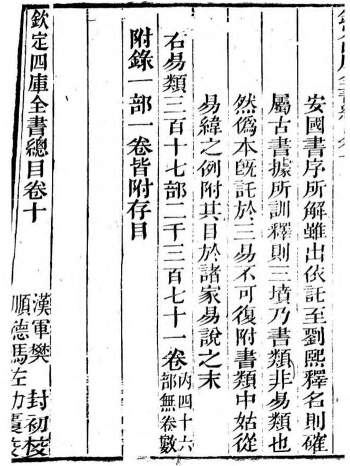 安國書序所解雖出依託至劉熙釋名則確
屬古書據所訓釋則三墳乃書類非易類也
然僞本旣託於三易不可復附書類中姑從
易緯之例附其目於諸家易說之末
右易類三百十七部二千三百七十一卷内四十六部無卷數
附錄一部一卷皆附存目
欽定四庫全書總目卷十
漢軍樊 封初校
順德馬左功覆校